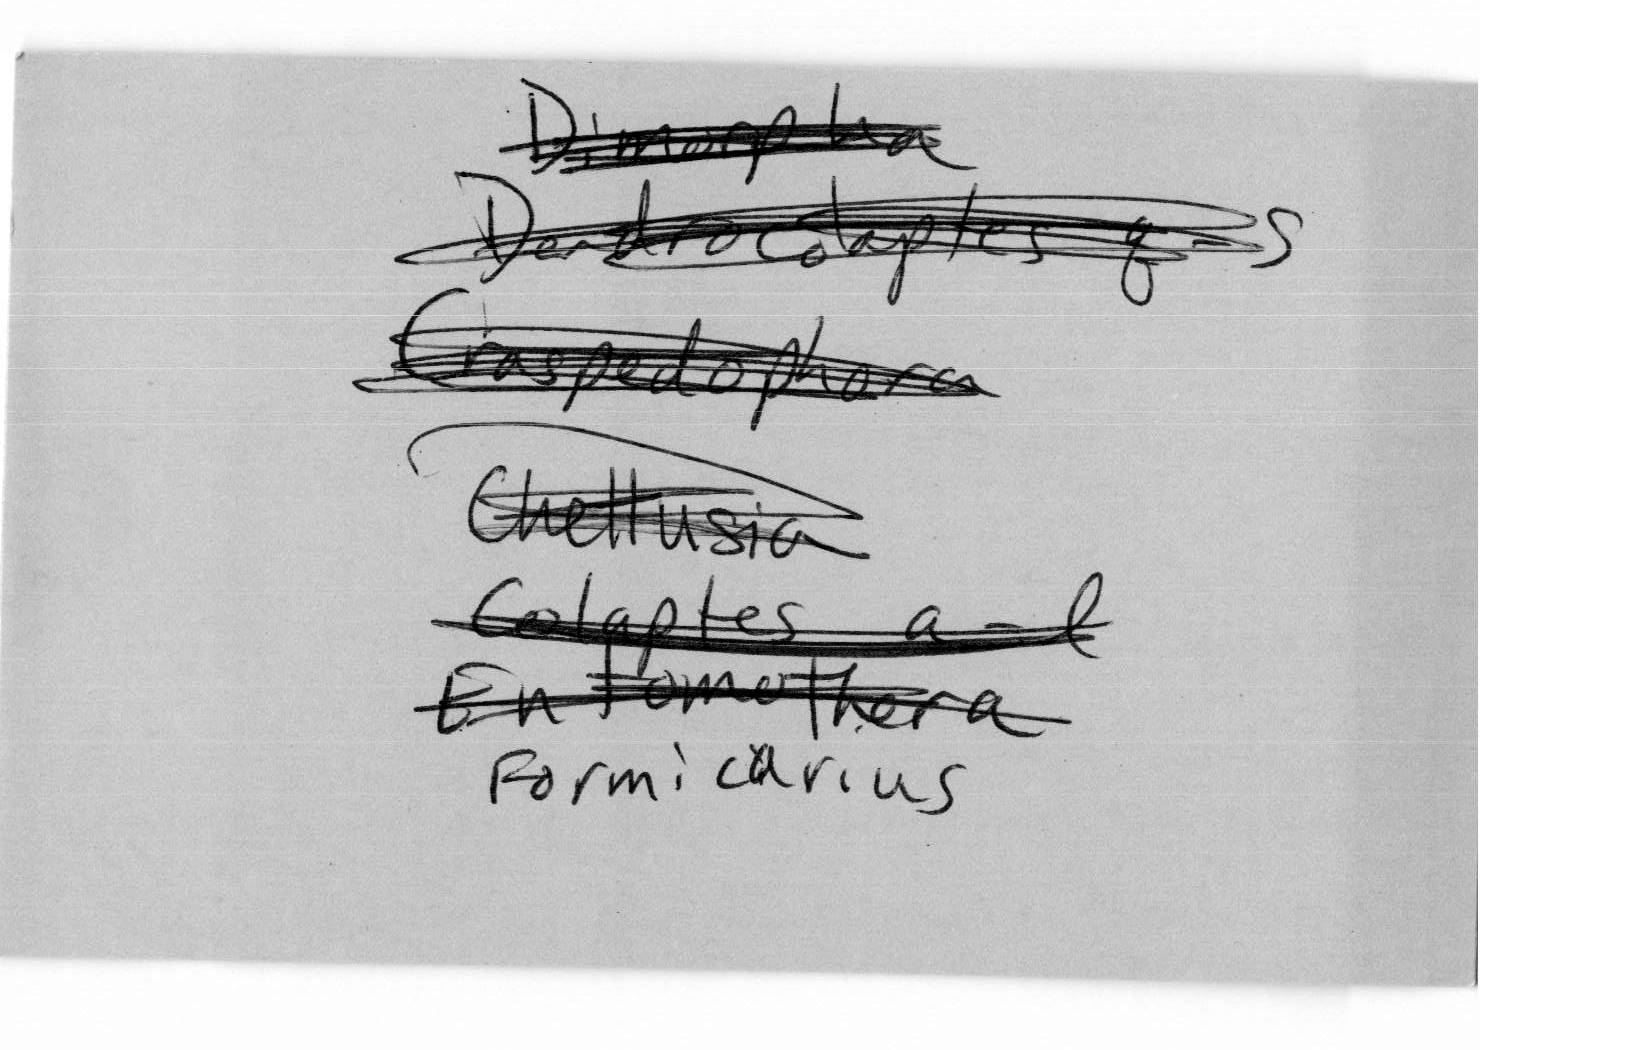 Dimorpha
Dendrocolaptes g-s
Craspedophora
Chettusia
Colaptes a-l
Entomothera
Formicarius